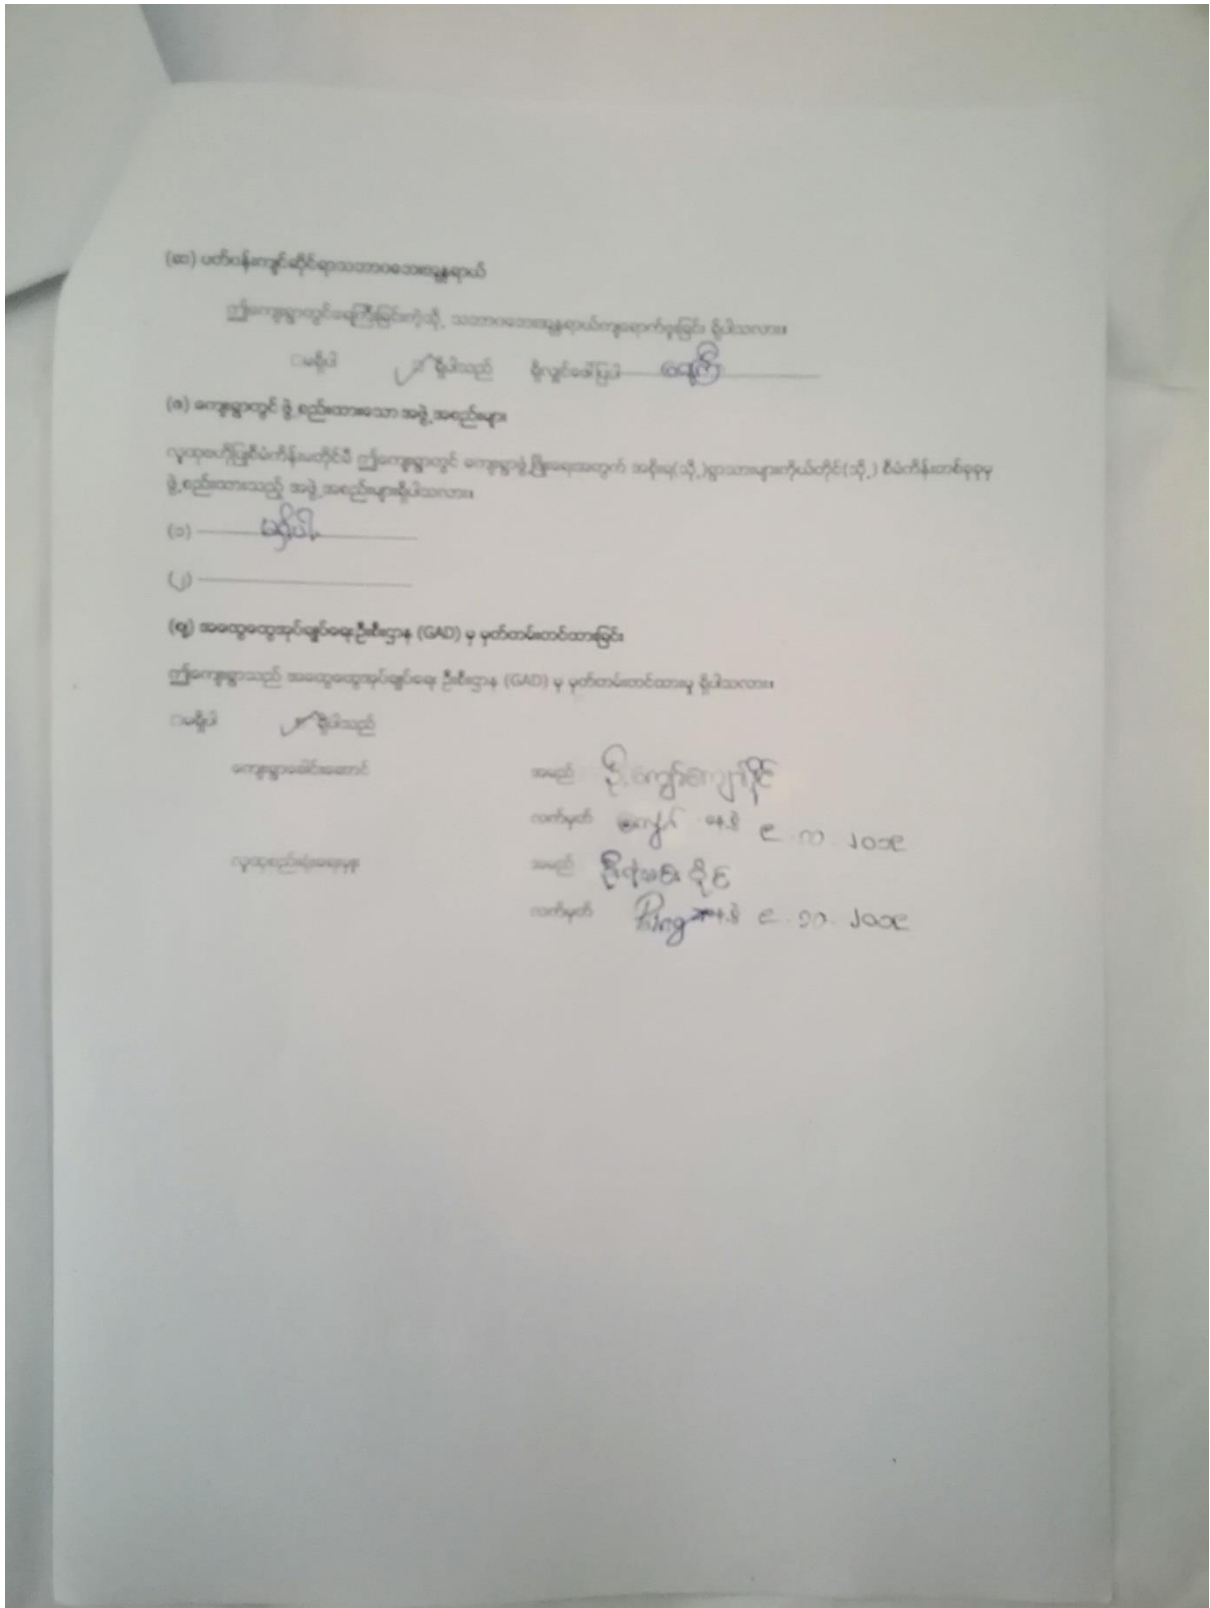 (ဆ) ပတ်ဝန်းကျင်ဆိုင်ရာသဘာဝဘေးအန္တရာယ်
ဤကျေးရွာတွင်ရေကြီးခြင်းကဲ့သို့ သဘာဝဘေးအန္တရာယ်ကျရောက်ဖူးခြင်း ရှိပါသလား။
□မရှိပါ □ ရှိပါသည် ရှိလျှင်ဖော်ပြပါ ရေကြီး
(ဇ) ကျေးရွာတွင် ဖွဲ့စည်းထားသော အဖွဲ့အစည်းများ
လူထုဗဟိုပြုစီမံကိန်းမတိုင်မီ ဤကျေးရွာတွင် ကျေးရွာဖွံ့ဖြိုးရေးအတွက် အစိုးရ(သို့)ရွာသားများကိုယ်တိုင်(သို့) စီမံကိန်းတစ်ခုခုမှ
ဖွဲ့စည်းထားသည့် အဖွဲ့အစည်းများရှိပါသလား။
(၁) မရှိပါ
(၂)
(ဈ) အထွေထွေအုပ်ချုပ်ရေးဦးစီးဌာန (GAD) မှ မှတ်တမ်းတင်ထားခြင်း
ဤကျေးရွာသည် အထွေထွေအုပ်ချုပ်ရေး ဦးစီးဌာန (GAD) မှ မှတ်တမ်းတင်ထားမှု ရှိပါသလား။
□မရှိပါ □ ရှိပါသည်
ကျေးရွာခေါင်းဆောင် အမည် ဦးကျော်ကျော်ဦး
လက်မှတ် နေ့စွဲ ၉.၊ ၂၀၁၉
လူထုစည်းရုံးရေးမှူး အမည်
လက်မှတ် နေ့စွဲ ၉.၁၁.၂၀၁၉